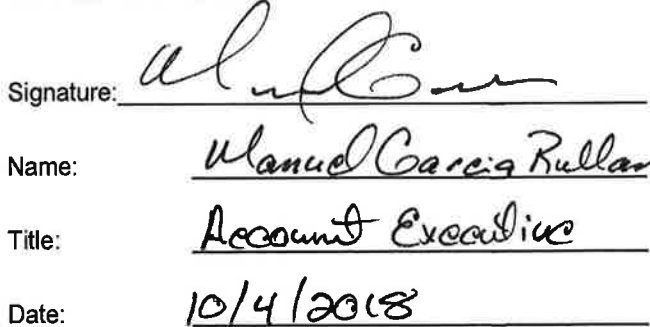 Signature:
Name: Manuel Garcia Rullan
Title: Account Executive
Date: 10/4/2018